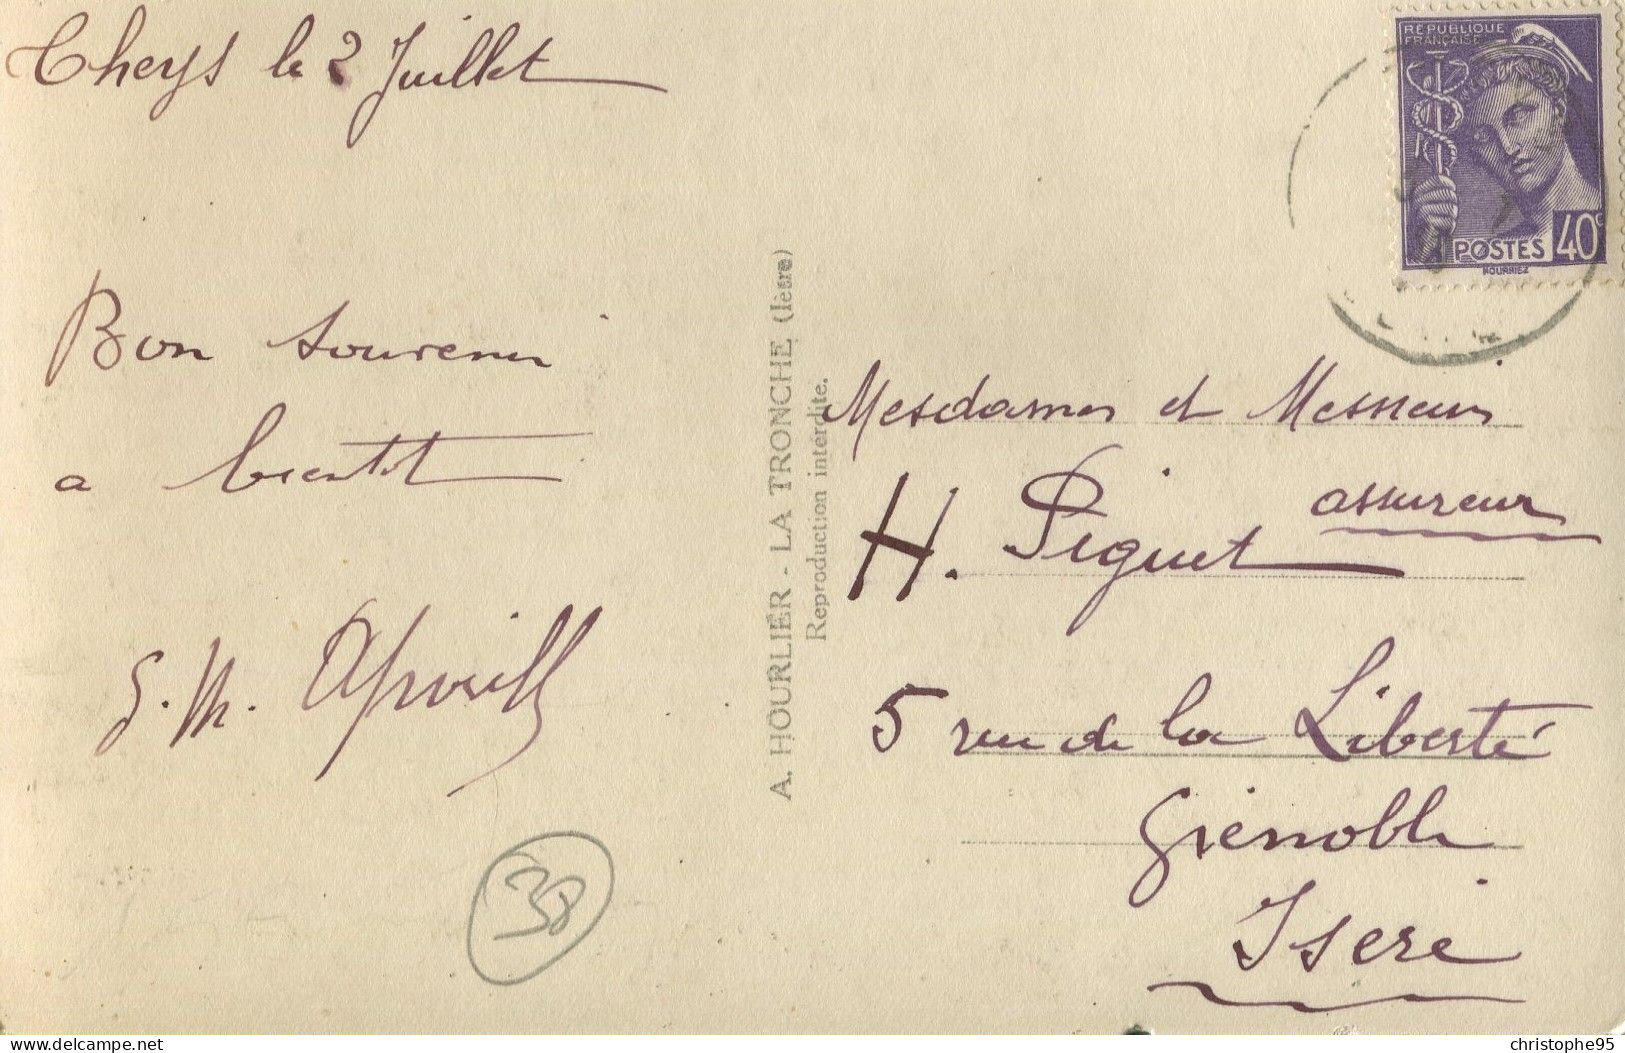 Theys le 2 Juillet
Bon souvenir
a bientot
G. M.
38
A. HOURLIER - LA TRONCHE (Isère)
Reproduction interdite.
REPUBLIQUE
FRANÇAISE
POSTES 40c
HOURRIEZ
Mesdames et Messieurs
H. Piguet assureur
5 rue de la Liberté
Grenoble
Isere
delcampe.net
christophe95